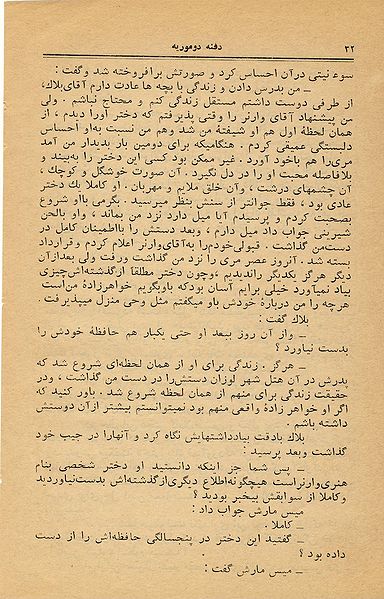 ۳۲
دفنه دوموریه
سوء نیتی در آن احساس کرد و صورتش برافروخته شد و گفت :
ـ من بدرس دادن و زندگی با بچه ها عادت دارم آقای بلاك،
از طرفی دوست داشتم مستقل زندگی کنم و محتاج نباشم . ولی
من پیشنهاد آقای وارنر را وقتی پذیرفتم که دختر اورا دیدم ، از
همان لحظهٔ اول هم او شیفتهٔ من شد وهم من نسبت به‌او احساس
دلبستگی عمیقی کردم . هنگامیکه برای دومین بار بدیدار من آمد
مری‌را هم باخود آورد . غیر ممکن بود کسی این دختر را به‌بیند و
بلافاصله محبت او را در دل نگیرد . آن صورت خوشگل و کوچك ،
آن چشمهای درشت ، وآن خلق ملایم و مهربان . او کاملا یك دختر
عادی بود ، فقط جوانتر از سنش بنظر میرسید . بگرمی بااو شروع
بصحبت کردم و پرسیدم آیا میل دارد نزد من بماند ، واو بالحن
شیرینی جواب داد میل دارم ، وبعد دستش را بااطمینان کامل در
دست‌من گذاشت . قبولی‌خودم‌را به‌آقای‌وارنر اعلام کردم وقرارداد
بسته شد . آنروز عصر مری را نزد من گذاشت ورفت ولی بعدازآن
دیگر هرگز یکدیگر راندیدیم ،وچون دختر مطلقا ازگذشته‌اش‌چیزی
بیاد نمیآورد خیلی برایم آسان بودکه باوبگویم خواهرزادهٔ من‌است
هرچه را من دربارهٔ خودش باو میگفتم مثل وحی منزل میپذیرفت
بلاك گفت :
ـ واز آن روز ببعد او حتی یکبار هم حافظهٔ خودش را
بدست نیاورد ؟
ـ هرگز . زندگی برای او از همان لحظه‌ای شروع شد که
پدرش در آن هتل شهر لوزان دستش‌را در دست من گذاشت ، ودر
حقیقت زندگی برای منهم از همان لحظه شروع شد . باور کنید که
اگر او خواهر زادهٔ واقعی منهم بود نمیتوانستم بیشتر ازآن دوستش
داشته باشم .
بلاك بادقت بیادداشتهایش نگاه کرد و آنهارا در جیب خود
گذاشت وبعد پرسید :
ـ پس شما جز اینکه دانستید او دختر شخصی بنام
هنری‌وارنراست هیچگونه‌اطلاع دیگری‌ازگذشته‌اش بدست‌نیاوردید
وکاملا از سوابقش بیخبر بودید ؟
میس مارش جواب داد :
ـ کاملا .
ـ گفتید این دختر در پنجسالگی حافظه‌اش را از دست
داده بود ؟
ـ میس مارش گفت :